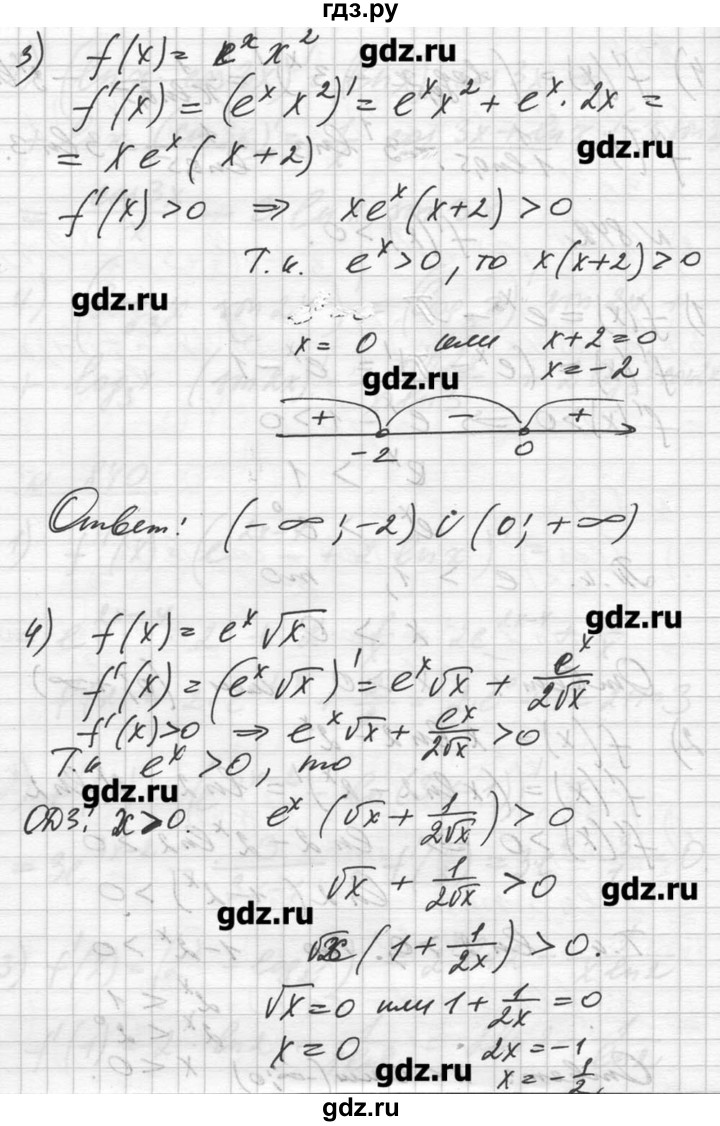 гдз.ру
3) f(x) = e^x x^2
gdz.ru
f'(x) = (e^x x^2)' = e^x x^2 + e^x · 2x =
= x e^x (x+2)
gdz.ru
f'(x) > 0 ⇒ x e^x (x+2) > 0
Т.к. e^x > 0, то x(x+2) > 0
gdz.ru
x = 0 или x+2=0
gdz.ru
x = -2
+ - +
-2 0
Ответ: (-∞; -2) ∪ (0; +∞)
gdz.ru
4) f(x) = e^x √x
f'(x) = (e^x √x)' = e^x √x + e^x/(2√x)
f'(x) > 0 ⇒ e^x √x + e^x/(2√x) > 0
Т.к. e^x > 0, то
gdz.ru
ОДЗ: x > 0. e^x (√x + 1/(2√x)) > 0
√x + 1/(2√x) > 0
gdz.ru
gdz.ru
√x (1 + 1/(2x)) > 0.
√x = 0 или 1 + 1/(2x) = 0
x = 0 2x = -1
gdz.ru
x = -1/2
gdz.ru